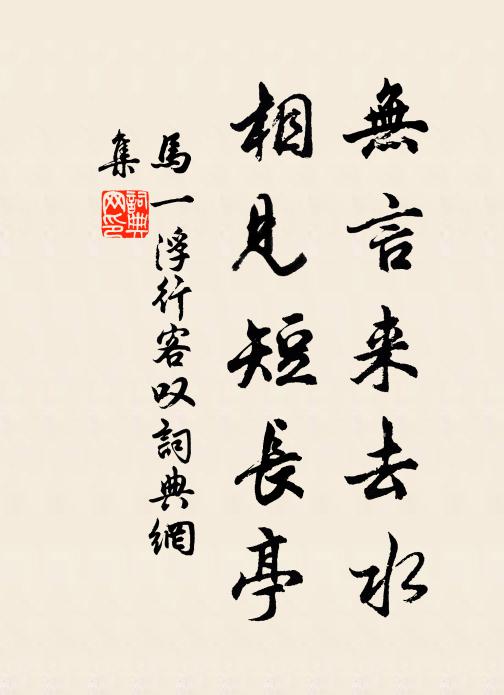 無言来去水
相見短長亭
馬一浮行客叹詞典網
集
詞典
网印